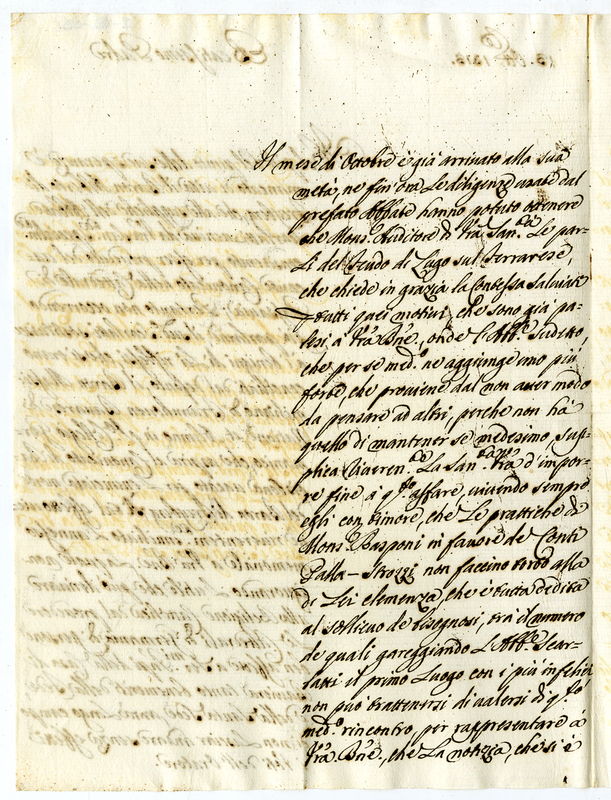 Il mese di Ottobre è già arrivato alla sua
metà, ne fin'ora Le diligenze usate dal
prefato Abbate hanno potuto ottenere
che Mons.r Auditore di Vrâ San.tà Le par-
li del feudo di Lugo sul Ferrarese,
che chiede in grazia la Contessa Salviati
tutti quei motivi, che sono già pa-
lesi à Vrâ Bne., onde l'Abb.e sudetto
che per se med.o ne aggiunge uno più
forte, che proviene dal non aver modo
da pensare ad altri, perche non hà
quello di mantener se medesimo, sup-
plica La San.tà Vrâ d'impor-
re fine à q.sto affare, vivendo sempre
egli con timore, che Le prattiche di
Mons.r Rasponi in favore de Conti
Palla-Strozzi non faccino alla
di Lei clemenza, che è tutta dedita
al sollievo de bisognosi, trà il numero
de quali gareggiando L'Abb.e Scar-
latti il primo Luogo con i più infelici
non può trattenersi di valersi di q.sto
med.o rincontro, per rappresentare à
Vrâ Bne., che La notizia, che si è